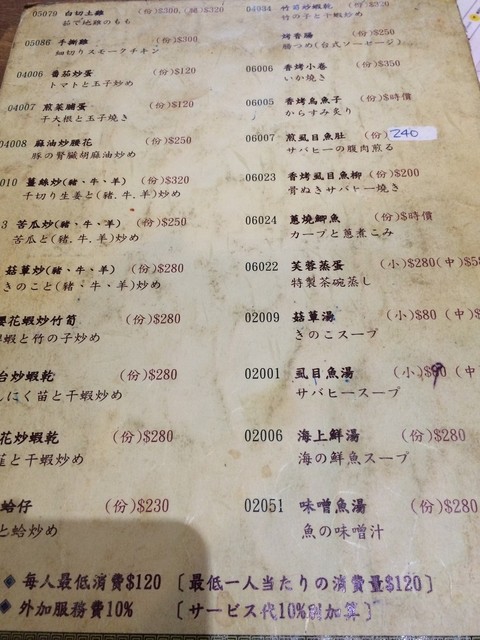 05079 白切土雞 (份)$300, (雞)$320
茹で地雞のもも
05086 手撕雞 (份)$300
細切りスモークチキン
04006 番茄炒蛋 (份)$120
トマトと玉子炒め
04007 煎菜脯蛋 (份)$120
干大根と玉子焼き
04008 麻油炒腰花 (份)$250
豚の腎臓胡麻油炒め
010 薑絲炒(豬、牛、羊) (份)$320
千切り生姜と(豬.牛.羊)炒め
3 苦瓜炒(豬、牛、羊) (份)$250
苦瓜と(豬.牛.羊)炒め
菇蕈炒(豬、牛、羊) (份)$280
きのこと(豬・牛・羊)炒め
櫻花蝦炒竹筍 (份)$280
蝦と竹の子炒め
台炒蝦乾 (份)$280
んにく苗と干蝦炒め
花炒蝦乾 (份)$280
韮と干蝦炒め
蛤仔 (份)$230
と蛤炒め
04034 竹筍炒蝦乾 (份)$320
竹の子と干蝦炒め
烤香腸 (份)$250
腸つめ(台式ソーセージ)
06006 香烤小卷 (份)$350
いか焼き
06005 香烤烏魚子 (份)$時價
からすみ炙り
06007 煎虱目魚肚 (份) 240
サバヒーの腹肉煎る
06023 香烤虱目魚柳 (份)$200
骨ぬきサバヒー焼き
06024 蔥燒鯽魚 (份)$時價
カープと蔥煮こみ
06022 芙蓉蒸蛋 (小)$280(中)$
特製茶碗蒸し
02009 菇蕈湯 (小)$80 (中)$
きのこスープ
02001 虱目魚湯 (小)$90 (中
サバヒースープ
02006 海上鮮湯 (份)$280
海の鮮魚スープ
02051 味噌魚湯 (份)$280
魚の味噌汁
◆ 每人最低消費$120 〔最低一人当たりの消費量$120〕
◆ 外加服務費10% 〔サービス代10%別加算〕